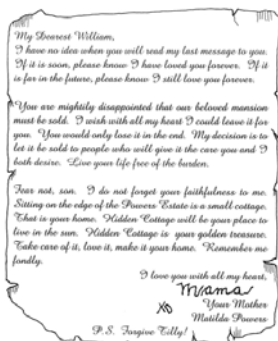 My Dearest William,
I have no idea when you will read my last message to you.
If it is soon, please know I have loved you forever. If it
is far in the future, please know I still love you forever.
You are mightily disappointed that our beloved mansion
must be sold. I wish with all my heart I could leave it for
you. You would only lose it in the end. My decision is to
let it be sold to people who will give it the care you and I
both desire. Live your life free of the burden.
Fear not, son. I do not forget your faithfulness to me.
Sitting on the edge of the Powers Estate is a small cottage.
That is your home. Hidden Cottage will be your place to
live in the sun. Hidden Cottage is your golden treasure.
Take care of it, love it, make it your home. Remember me
fondly.
I love you with all my heart,
Mama
XO Your Mother
Matilda Powers
P.S. Forgive Tilly!